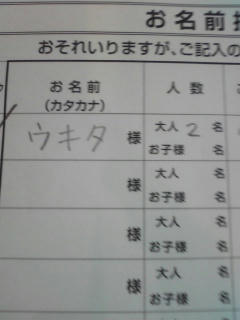 お名前
おそれいりますが、ご記入の
お名前
(カタカナ)
人数
ウキタ 様
大人 2 名
お子様 名
様
大人 名
お子様 名
様
大人 名
お子様 名
様
大人 名
お子様 名